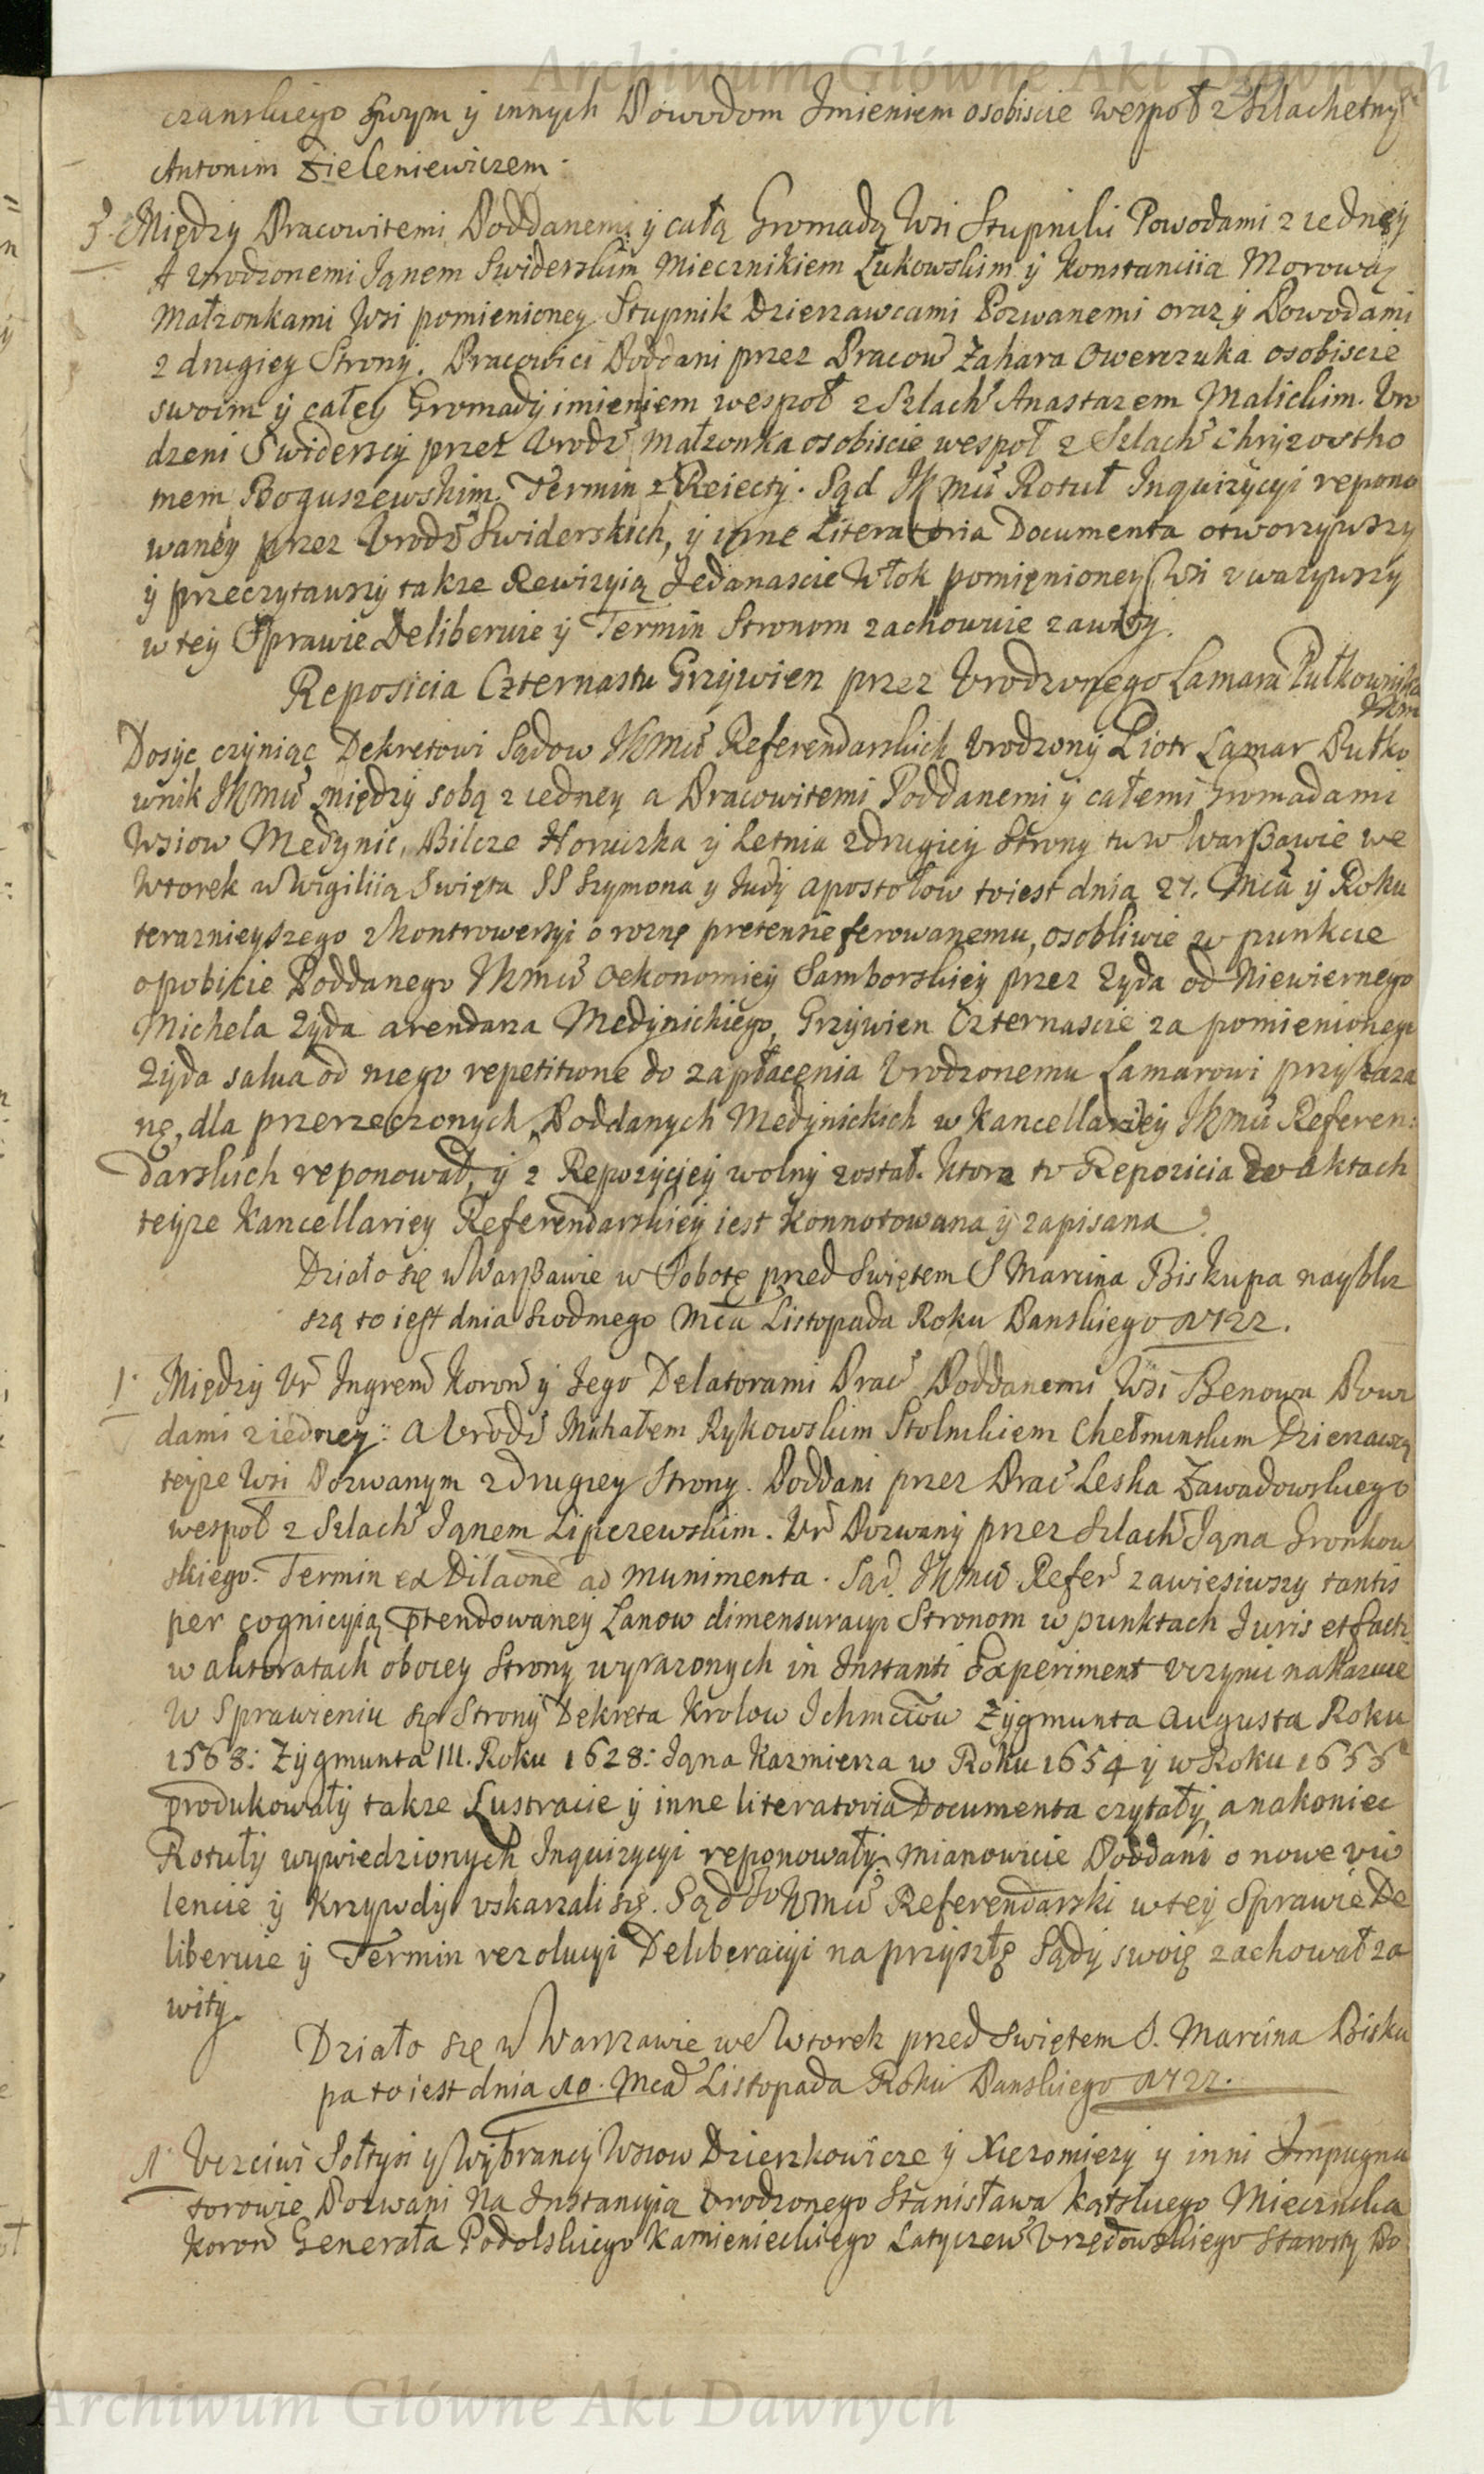 Archiwum Główne Akt Dawnych
czanskiego swym y innych Powodom Imieniem osobiscie wespoł z Szlachetny
Antonim Zieleniewiczem.
3. Między Pracowitemi Poddanemi y całą Gromadą Wsi Stupnicki Powodami z iedney
A Vrodzonemi Janem Swiderskim Miecznikiem Łukowskim y Konstancią Morową
Małzonkami Wsi pomienioney Stupnik Dzierzawcami Pozwanemi oraz y Powodami
z drugiey Strony. Pracowici Poddani przez Pracow̃ Zahara Owerczuka osobiscie
swoim y całey Gromady imieniem wespoł z Szlach̃ Anastazem Malickim. Vro
dzeni Swiderscy przez Vrodz̃ Małzonka osobiscie wespoł z Szlach̃ Chryzostho
mem Boguszewskim. Termin z Reiecty. Sąd JKmci Rotuł Inquizycyi repono
waney przez Vrodz̃ Swiderskich, y inne Literatoria Documenta otworzywszy
y przeczytawszy takze Rewizyią Jedanascie Włok pomienioney Wsi zwazywszy
w tey Sprawie Deliberuie y Termin Stronom zachowuie zawity.
Reposicia Czternastu Grzywien przez Vrodzonego Lamara Pułkownika
JKm
Dosyc czyniąc Dekretowi Sądow JKmci Referendarskich Vrodzony Piotr Lamar Pułko
wnik JKmci między sobą z iedney a Pracowitemi Poddanemi y całemi Gromadami
Wsiow Medynic, Bilcze Horuczka y Letnia z drugiey Strony tu w Warszawie we
Wtorek w Wigiliią Swięta SS Szymona y Judy Apostołow to iest dnia 27. Mca y Roku
teraznieyszego z kontrowersyi o rozne pretensie ferowanemu, osobliwie w punkcie
o pobicie Poddanego JKmci Oekonomiey Samborskiey przez Zyda od Niewiernego
Michela Zyda arendarza Medynickiego, Grzywien Czternascie za pomienionego
Zyda salva od niego repetitione do zapłacenia Vrodzonemu Lamarowi przykaza
ne, dla przerzeczonych Poddanych Medynickich w Kancellariey JKmci Referen:
darskich reponował, y z Repozycyey wolny został. Ktora to Reposicia w aktach
teyze Kancellariey Referendarskiey iest konnotowana y zapisana.
Działo się w Warszawie w Sobotę przed Swiętem S Marcina Biskupa naybliz
szą to iest dnia siodmego Mca Listopada Roku Panskiego 1722.
1. Między Vr̃ Ingren̄ Koron̄ y Jego Delatorami Prac̃ Poddanemi Wsi Benowa Powo
dami z iedney: a Vrodz̃ Michałem Rykowskim Stolnikiem Chełminskim Dzierzawcą
teyze Wsi Pozwanym z drugiey Strony. Poddani przez Prac̃ Leska Zawadowskiego
wespoł z Szlach̃ Janem Lipczewskim. Vr̃ Pozwany przez Szlach̃ Jana Gronkow
skiego. Termin ex Dilãone ad munimenta. Sąd JKmci Refer̃ zawiesiwszy tantis
per cognicyią ptendowaney Lanow dimensuracyi Stronom w punktach Juris et facti
w aktoratach oboiey Strony wyrazonych in Instanti Experiment vczynic nakazuie
W Sprawieniu się Strony Dekreta Krolow Ichmciow Zygmunta Augusta Roku
1568: Zygmunta III. Roku 1628: Jana Kazmierza w Roku 1654 y w Roku 1655
produkowały takze Lustracie y inne literatoria Documenta czytały, a nakoniec
Rotuły wywiedzionych Inquizycyi reponowały. mianowicie Poddani o nowe vio
lencie y krzywdy vskarzali się. Sąd JKmci Referendarski w tey Sprawie De
liberuie y Termin rezolucyi Deliberacyi na przyszłę Sądy swoię zachował za
wity.
Działo się w Warszawie we Wtorek przed Swiętem S. Marcina Bisku
pa to iest dnia 10. Mca Listopada Roku Panskiego 1722.
1. Vczciwi Sołtysi y Wybrancy Wsiow Dzierzkowicze y Xięzomierzy y inni Impugna
torowie Pozwani Na Instancyią Vrodzonego Stanisława Kątskiego Miecznika
Koron̄ Generała Podolskiego Kamienieckiego Latyczew̃ Vrzędowskiego Starosty Po
Archiwum Główne Akt Dawnych